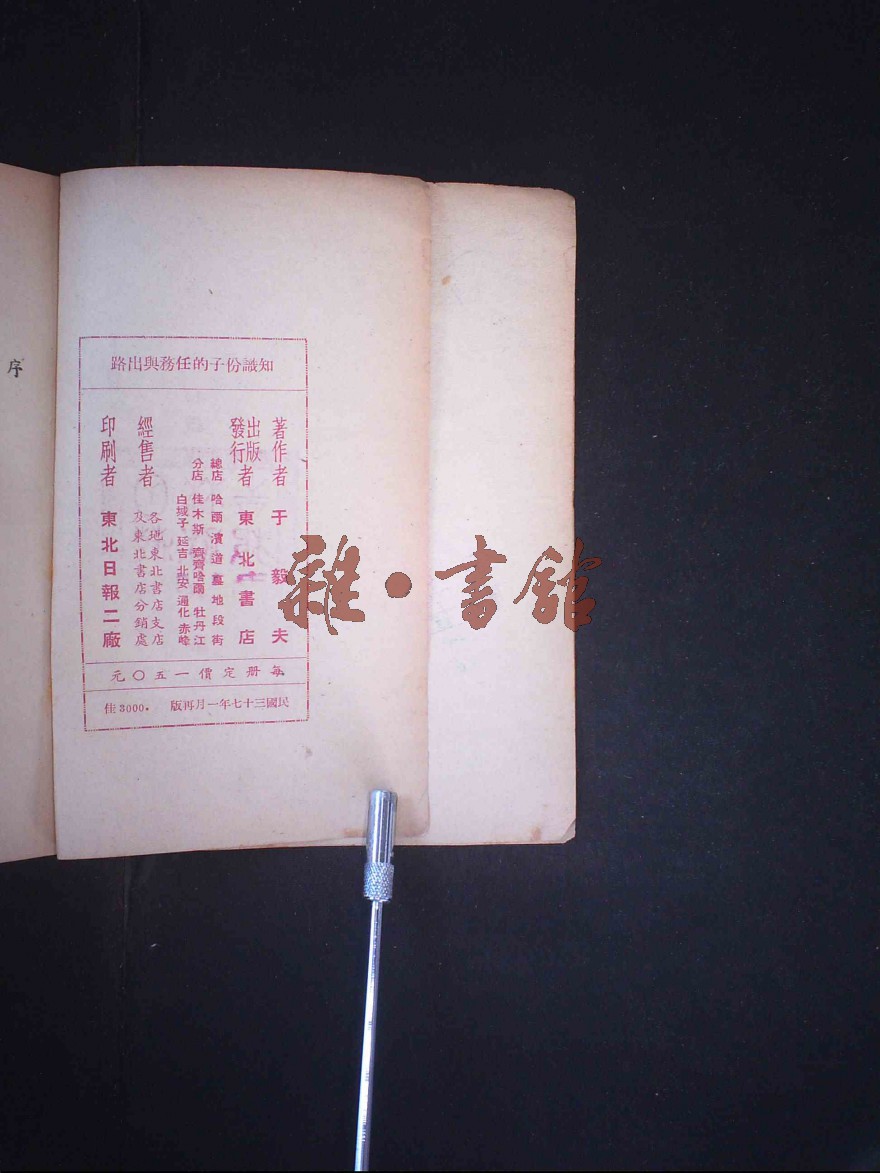 知識份子的任務與出路
著作者 于毅夫
出版
發行者 東北書店
總店 哈爾濱道裏地段街
分店 佳木斯 齊齊哈爾 牡丹江
白城子 延吉 北安 通化 赤峰
經售者 各地東北書店支店
及東北書店分銷處
印刷者 東北日報二廠
每册定價一五〇元
民國三十七年一月再版 佳3000.
序
雜·書館